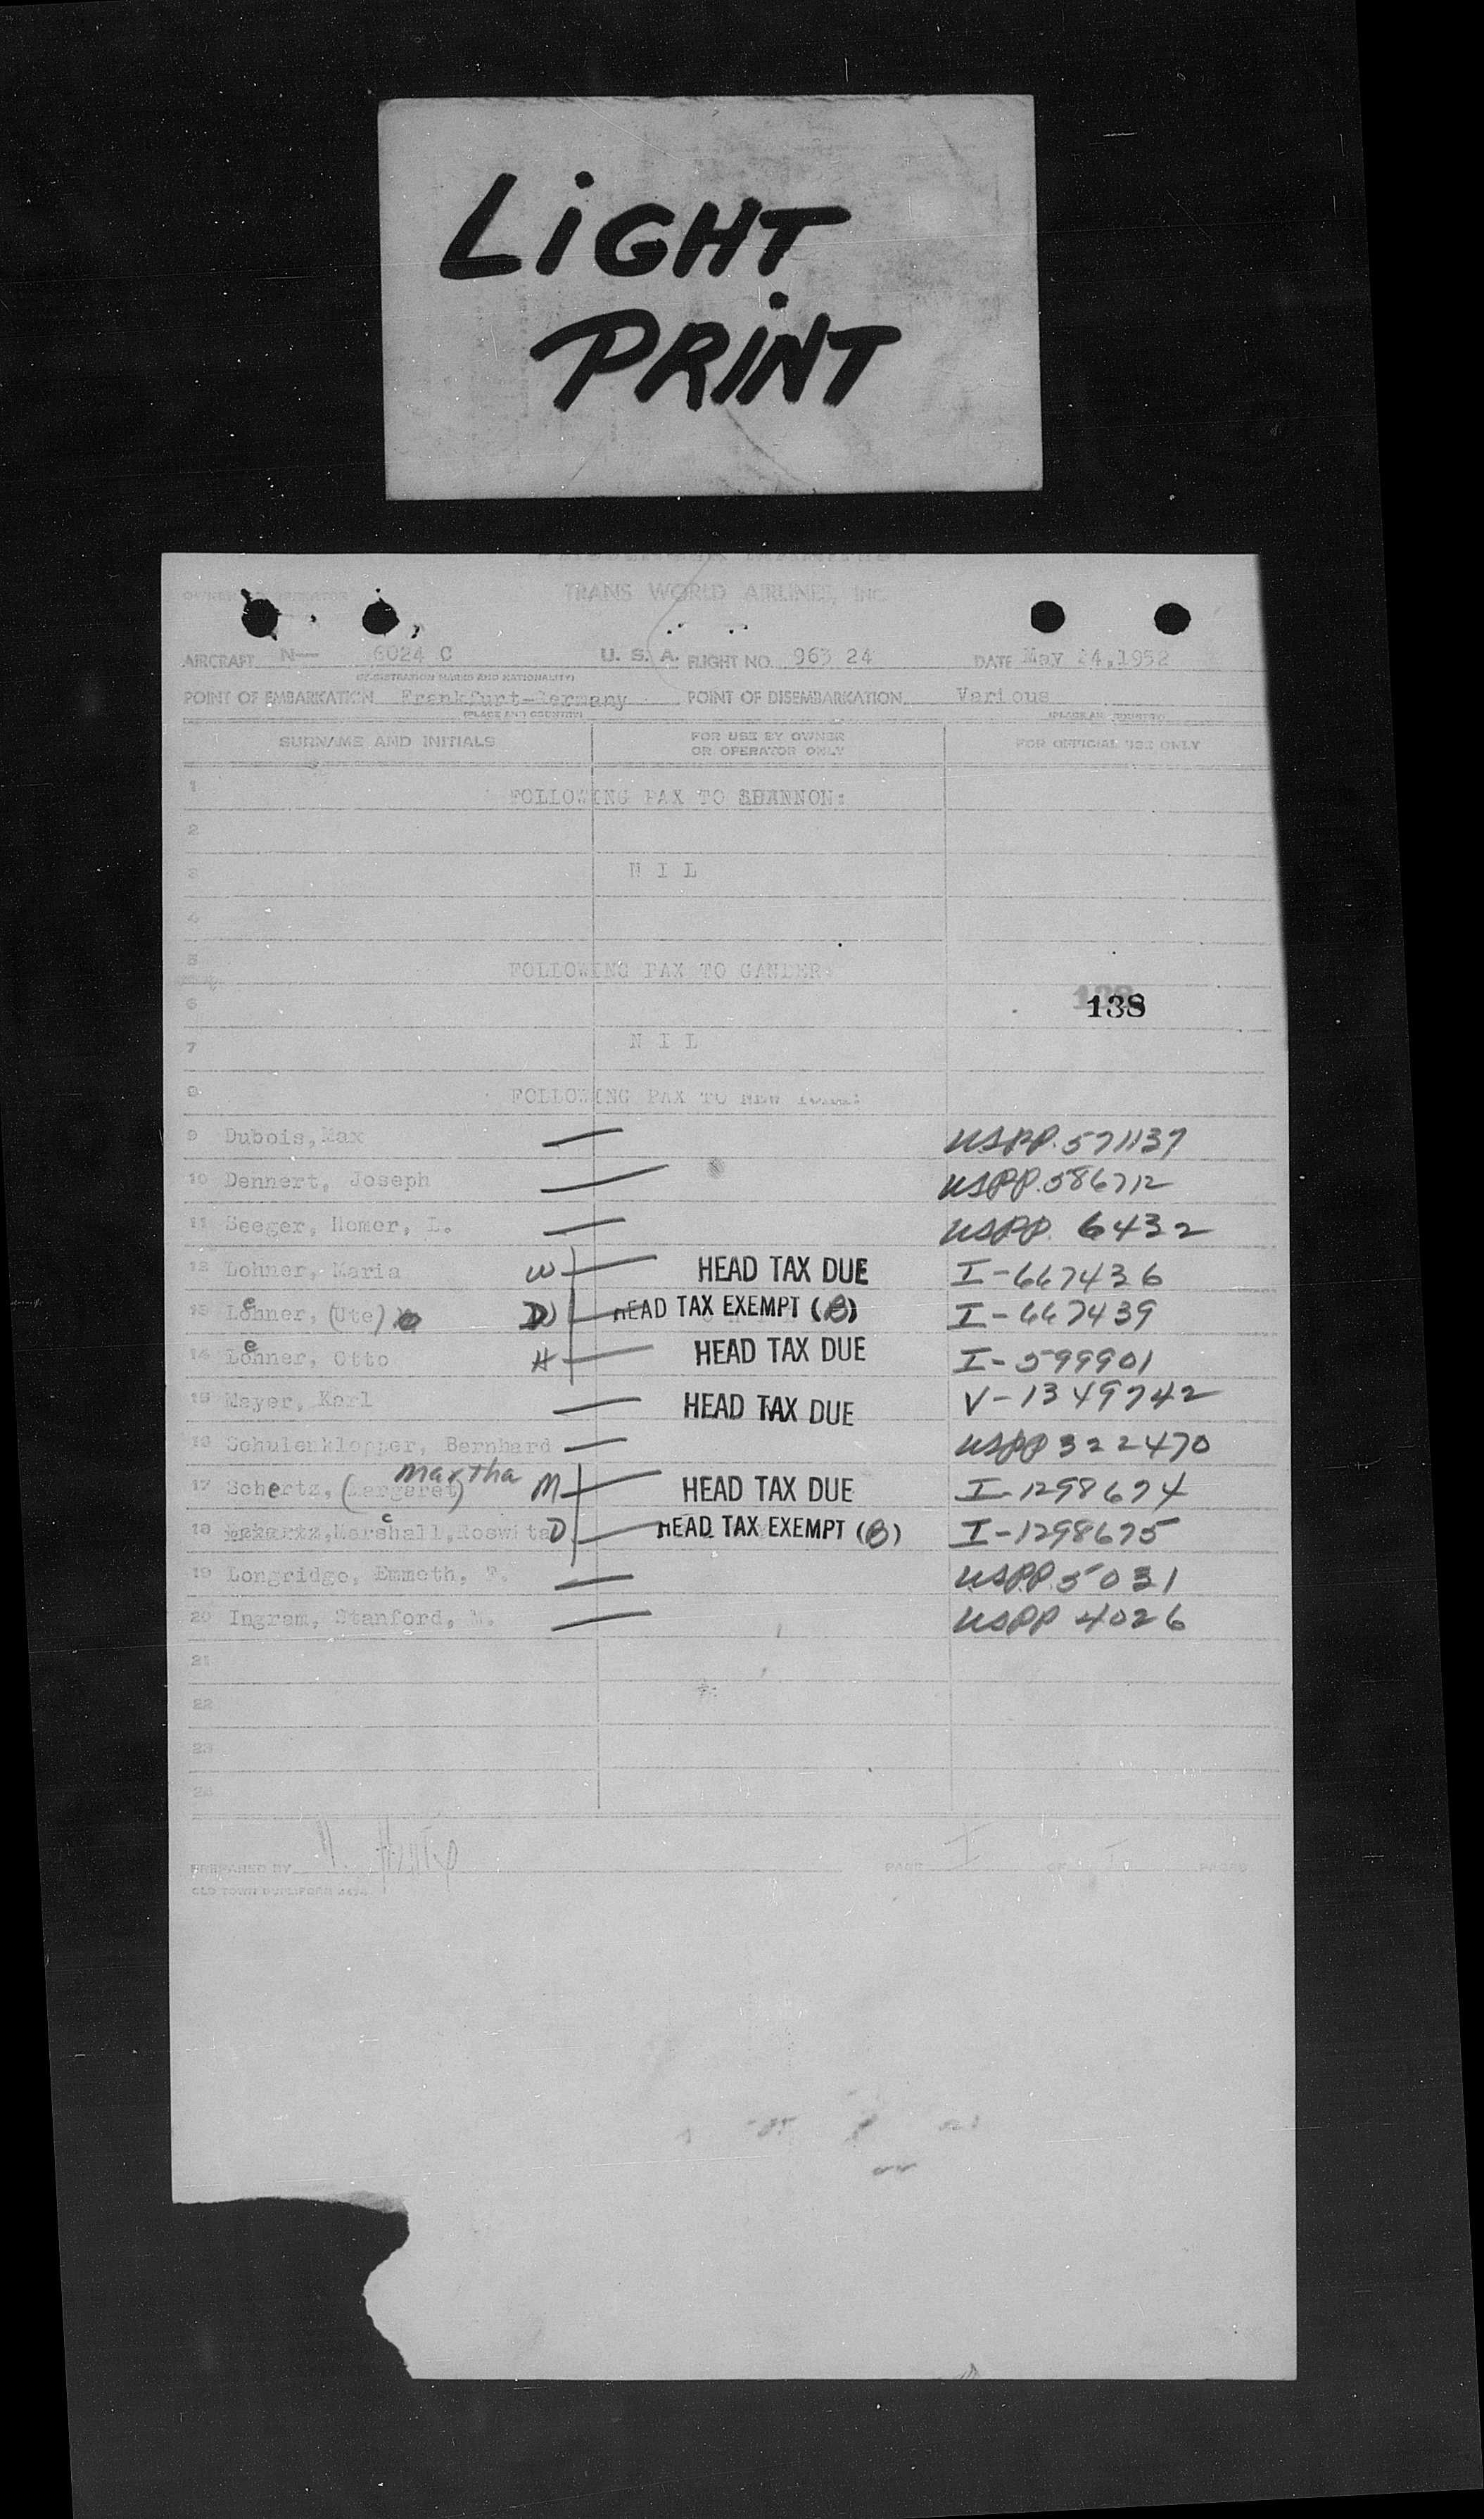 LiGHT
PRiNT
PASSENGER MANIFEST
OWNER OR OPERATOR TRANS WORLD AIRLINES, INC.
AIRCRAFT N— 6024 C U. S. A. FLIGHT NO. 963 24 DATE May 24,1952
(REGISTRATION MARKS AND NATIONALITY)
POINT OF EMBARKATION Frankfurt-Germany POINT OF DISEMBARKATION Various
(PLACE AND COUNTRY) (PLACE AND COUNTRY)
SURNAME AND INITIALS FOR USE BY OWNER OR OPERATOR ONLY FOR OFFICIAL USE ONLY
1 FOLLOWING PAX TO SHANNON:
2
3 N I L
4
5 FOLLOWING PAX TO GANDER:
6 138
7 N I L
8 FOLLOWING PAX TO NEW YORK:
9 Dubois,Max — USPP.571137
10 Dennert, Joseph — USPP.586712
11 Seeger, Homer, L. — USPP. 6432
12 Lohner, Maria W — HEAD TAX DUE I-667436
13 Lohner, (Ute) e D — HEAD TAX EXEMPT (B) I-667439
14 Lohner, Otto e H — HEAD TAX DUE I-599901
15 Mayer, Karl — HEAD TAX DUE V-1349742
16 Schulenklopper, Bernhard — USPP 322470
17 Schertz, (Margaret) Martha M — HEAD TAX DUE I-1298674
18 Marschall,Roswita D — HEAD TAX EXEMPT (B) I-1298675
19 Longridge, Emmeth, F. — USPP.5031
20 Ingram, Stanford, W. — USPP 4026
21
22
23
24
PREPARED BY PAGE I OF I PAGES
OLD TOWN DUPLIFORM